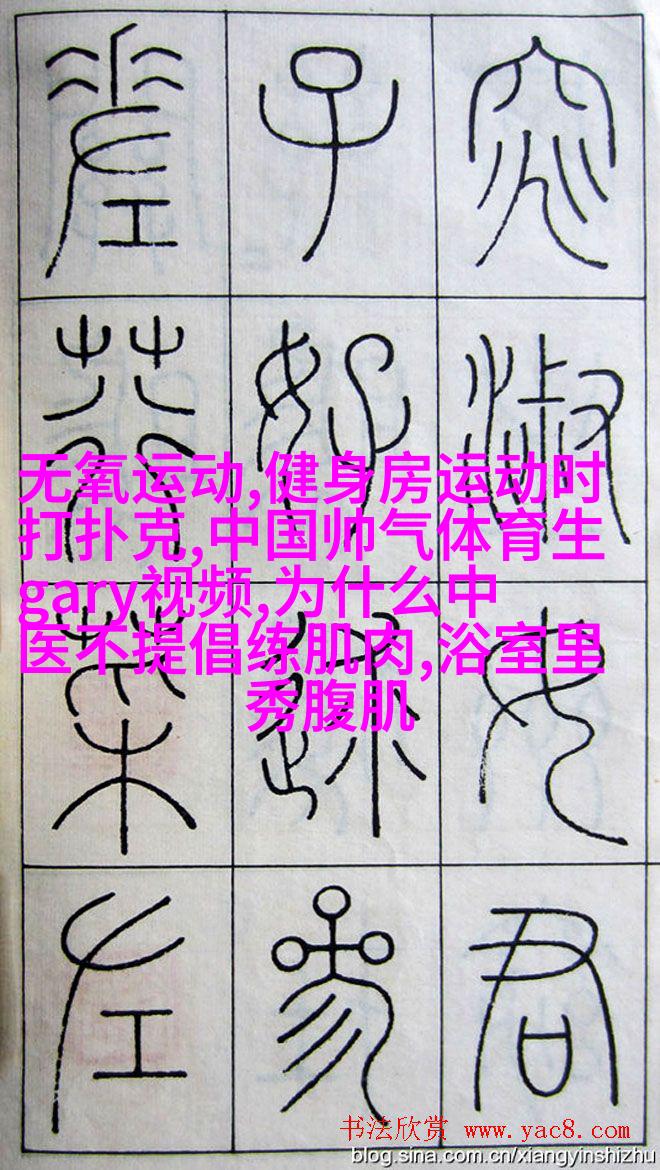 窕淑女君
子好逑參
差荇菜左
无氧运动,健身房运动时
打扑克,中国帅气体育生
gary视频,为什么中
医不提倡练肌肉,浴室里
秀腹肌
书法欣赏 www.yac8.com
blog.sina.com.cn/xiangyinshizhu